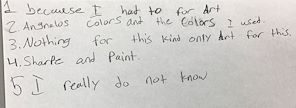 1. because I had to for Art
2. Angnalos colors and the Colors I used.
3. Nothing for this kind only Art for this.
4. Sharpe and Paint.
5 I really do not know